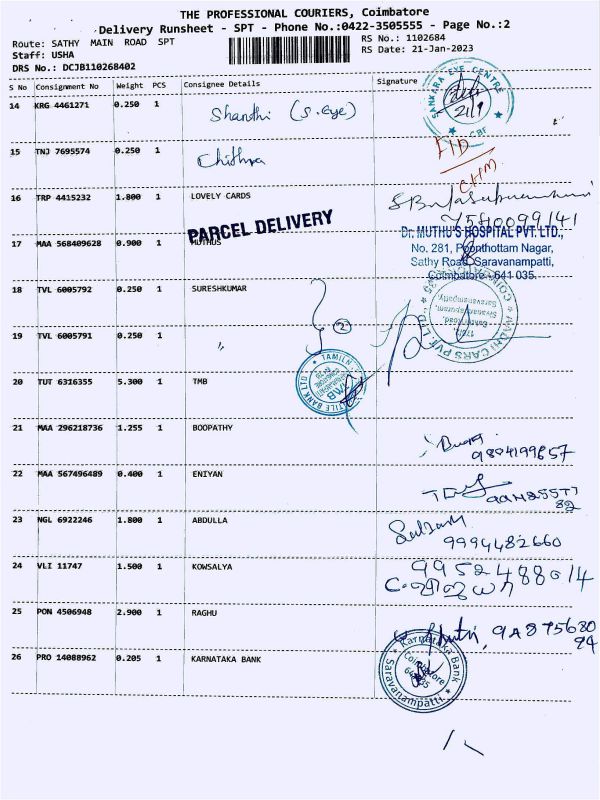 THE PROFESSIONAL COURIERS, Coimbatore
Delivery Runsheet - SPT - Phone No.:0422-3505555 - Page No.:2
Route: SATHY MAIN ROAD SPT
RS No.: 1102684
Staff: USHA
RS Date: 21-Jan-2023
DRS No.: DCJB110268402
S No Consignment No Weight PCS Consignee Details Signature
14 KRG 4461271 0.250 1 Shanthi (S.Eye)
SANKARA EYE CENTRE
21/1
CBE
15 TNJ 7695574 0.250 1 Chithra
16 TRP 4415232 1.800 1 LOVELY CARDS
7510099141
PARCEL DELIVERY
17 MAA 568409628 0.900 1 MUTHUS
Dr. MUTHU'S HOSPITAL PVT. LTD.,
No. 281, Poonthottam Nagar,
Sathy Road, Saravanampatti,
Coimbatore - 641 035.
18 TVL 6005792 0.250 1 SURESHKUMAR
2
CARS PVT. LTD.
Sivasakthipuram,
Saravanampatty,
19 TVL 6005791 0.250 1 "
20 TUT 6316355 5.300 1 TMB
TMB
21 MAA 296218736 1.255 1 BOOPATHY
9894199657
22 MAA 567496489 0.400 1 ENIYAN
23 NGL 6922246 1.800 1 ABDULLA
9994482660
24 VLI 11747 1.500 1 KOWSALYA
9952488014
25 PON 4506948 2.900 1 RAGHU
26 PRO 14088962 0.205 1 KARNATAKA BANK
Karnataka Bank
Coimbatore
Saravanampatti